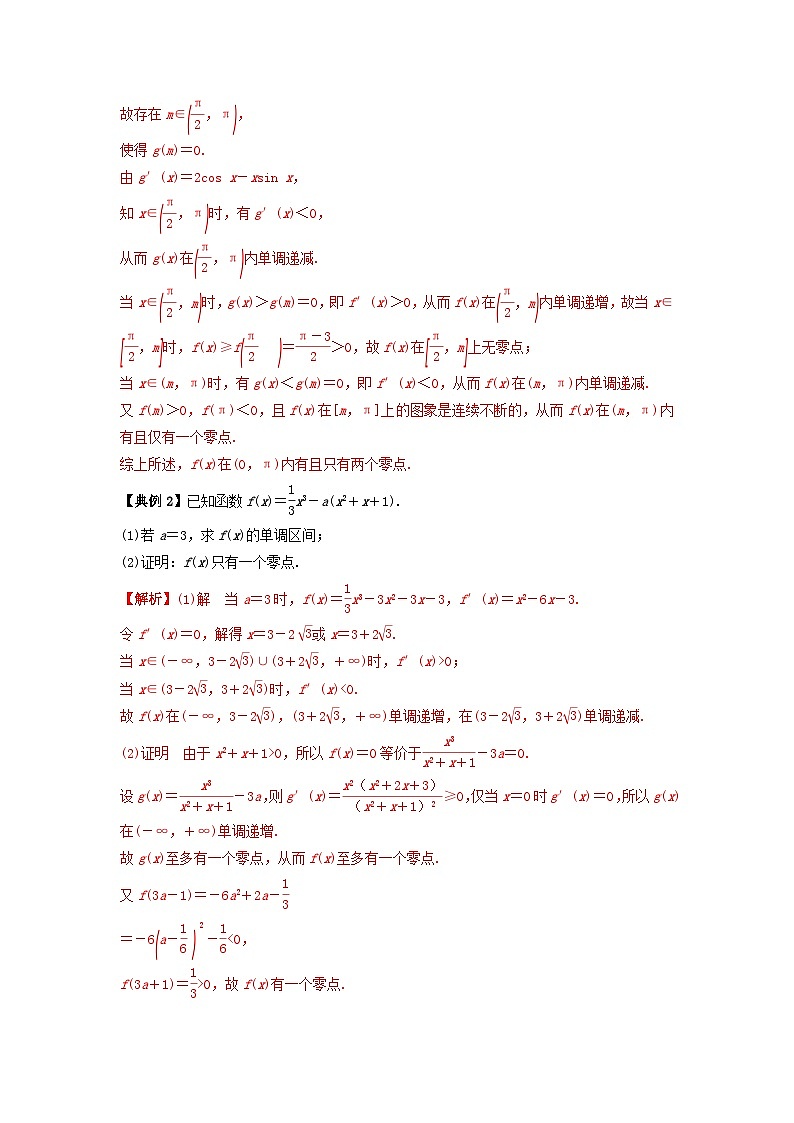 故存在 m∈(π/2, π),
使得 g(m)=0.
由 g′(x)=2cos x-xsin x,
知 x∈(π/2, π)时,有 g′(x)<0,
从而 g(x)在(π/2, π)内单调递减.
当 x∈(π/2, m)时,g(x)>g(m)=0,即 f′(x)>0,从而 f(x)在(π/2, m)内单调递增,故当 x∈
[π/2, m]时,f(x)≥f(π/2)=(π-3)/2>0,故 f(x)在[π/2, m]上无零点;
当 x∈(m,π)时,有 g(x)<g(m)=0,即 f′(x)<0,从而 f(x)在(m,π)内单调递减.
又 f(m)>0,f(π)<0,且 f(x)在[m,π]上的图象是连续不断的,从而 f(x)在(m,π)内
有且仅有一个零点.
综上所述,f(x)在(0,π)内有且只有两个零点.
【典例 2】已知函数 f(x)=1/3x³-a(x²+x+1).
(1)若 a=3,求 f(x)的单调区间;
(2)证明:f(x)只有一个零点.
【解析】(1)解 当 a=3 时,f(x)=1/3x³-3x²-3x-3,f′(x)=x²-6x-3.
令 f′(x)=0,解得 x=3-2√3或 x=3+2√3.
当 x∈(-∞,3-2√3)∪(3+2√3,+∞)时,f′(x)>0;
当 x∈(3-2√3,3+2√3)时,f′(x)<0.
故 f(x)在(-∞,3-2√3),(3+2√3,+∞)单调递增,在(3-2√3,3+2√3)单调递减.
(2)证明 由于 x²+x+1>0,所以 f(x)=0 等价于x³/(x²+x+1)-3a=0.
设 g(x)=x³/(x²+x+1)-3a,则 g′(x)=x²(x²+2x+3)/(x²+x+1)²≥0,仅当 x=0 时 g′(x)=0,所以 g(x)
在(-∞,+∞)单调递增.
故 g(x)至多有一个零点,从而 f(x)至多有一个零点.
又 f(3a-1)=-6a²+2a-1/3
=-6(a-1/6)²-1/6<0,
f(3a+1)=1/3>0,故 f(x)有一个零点.